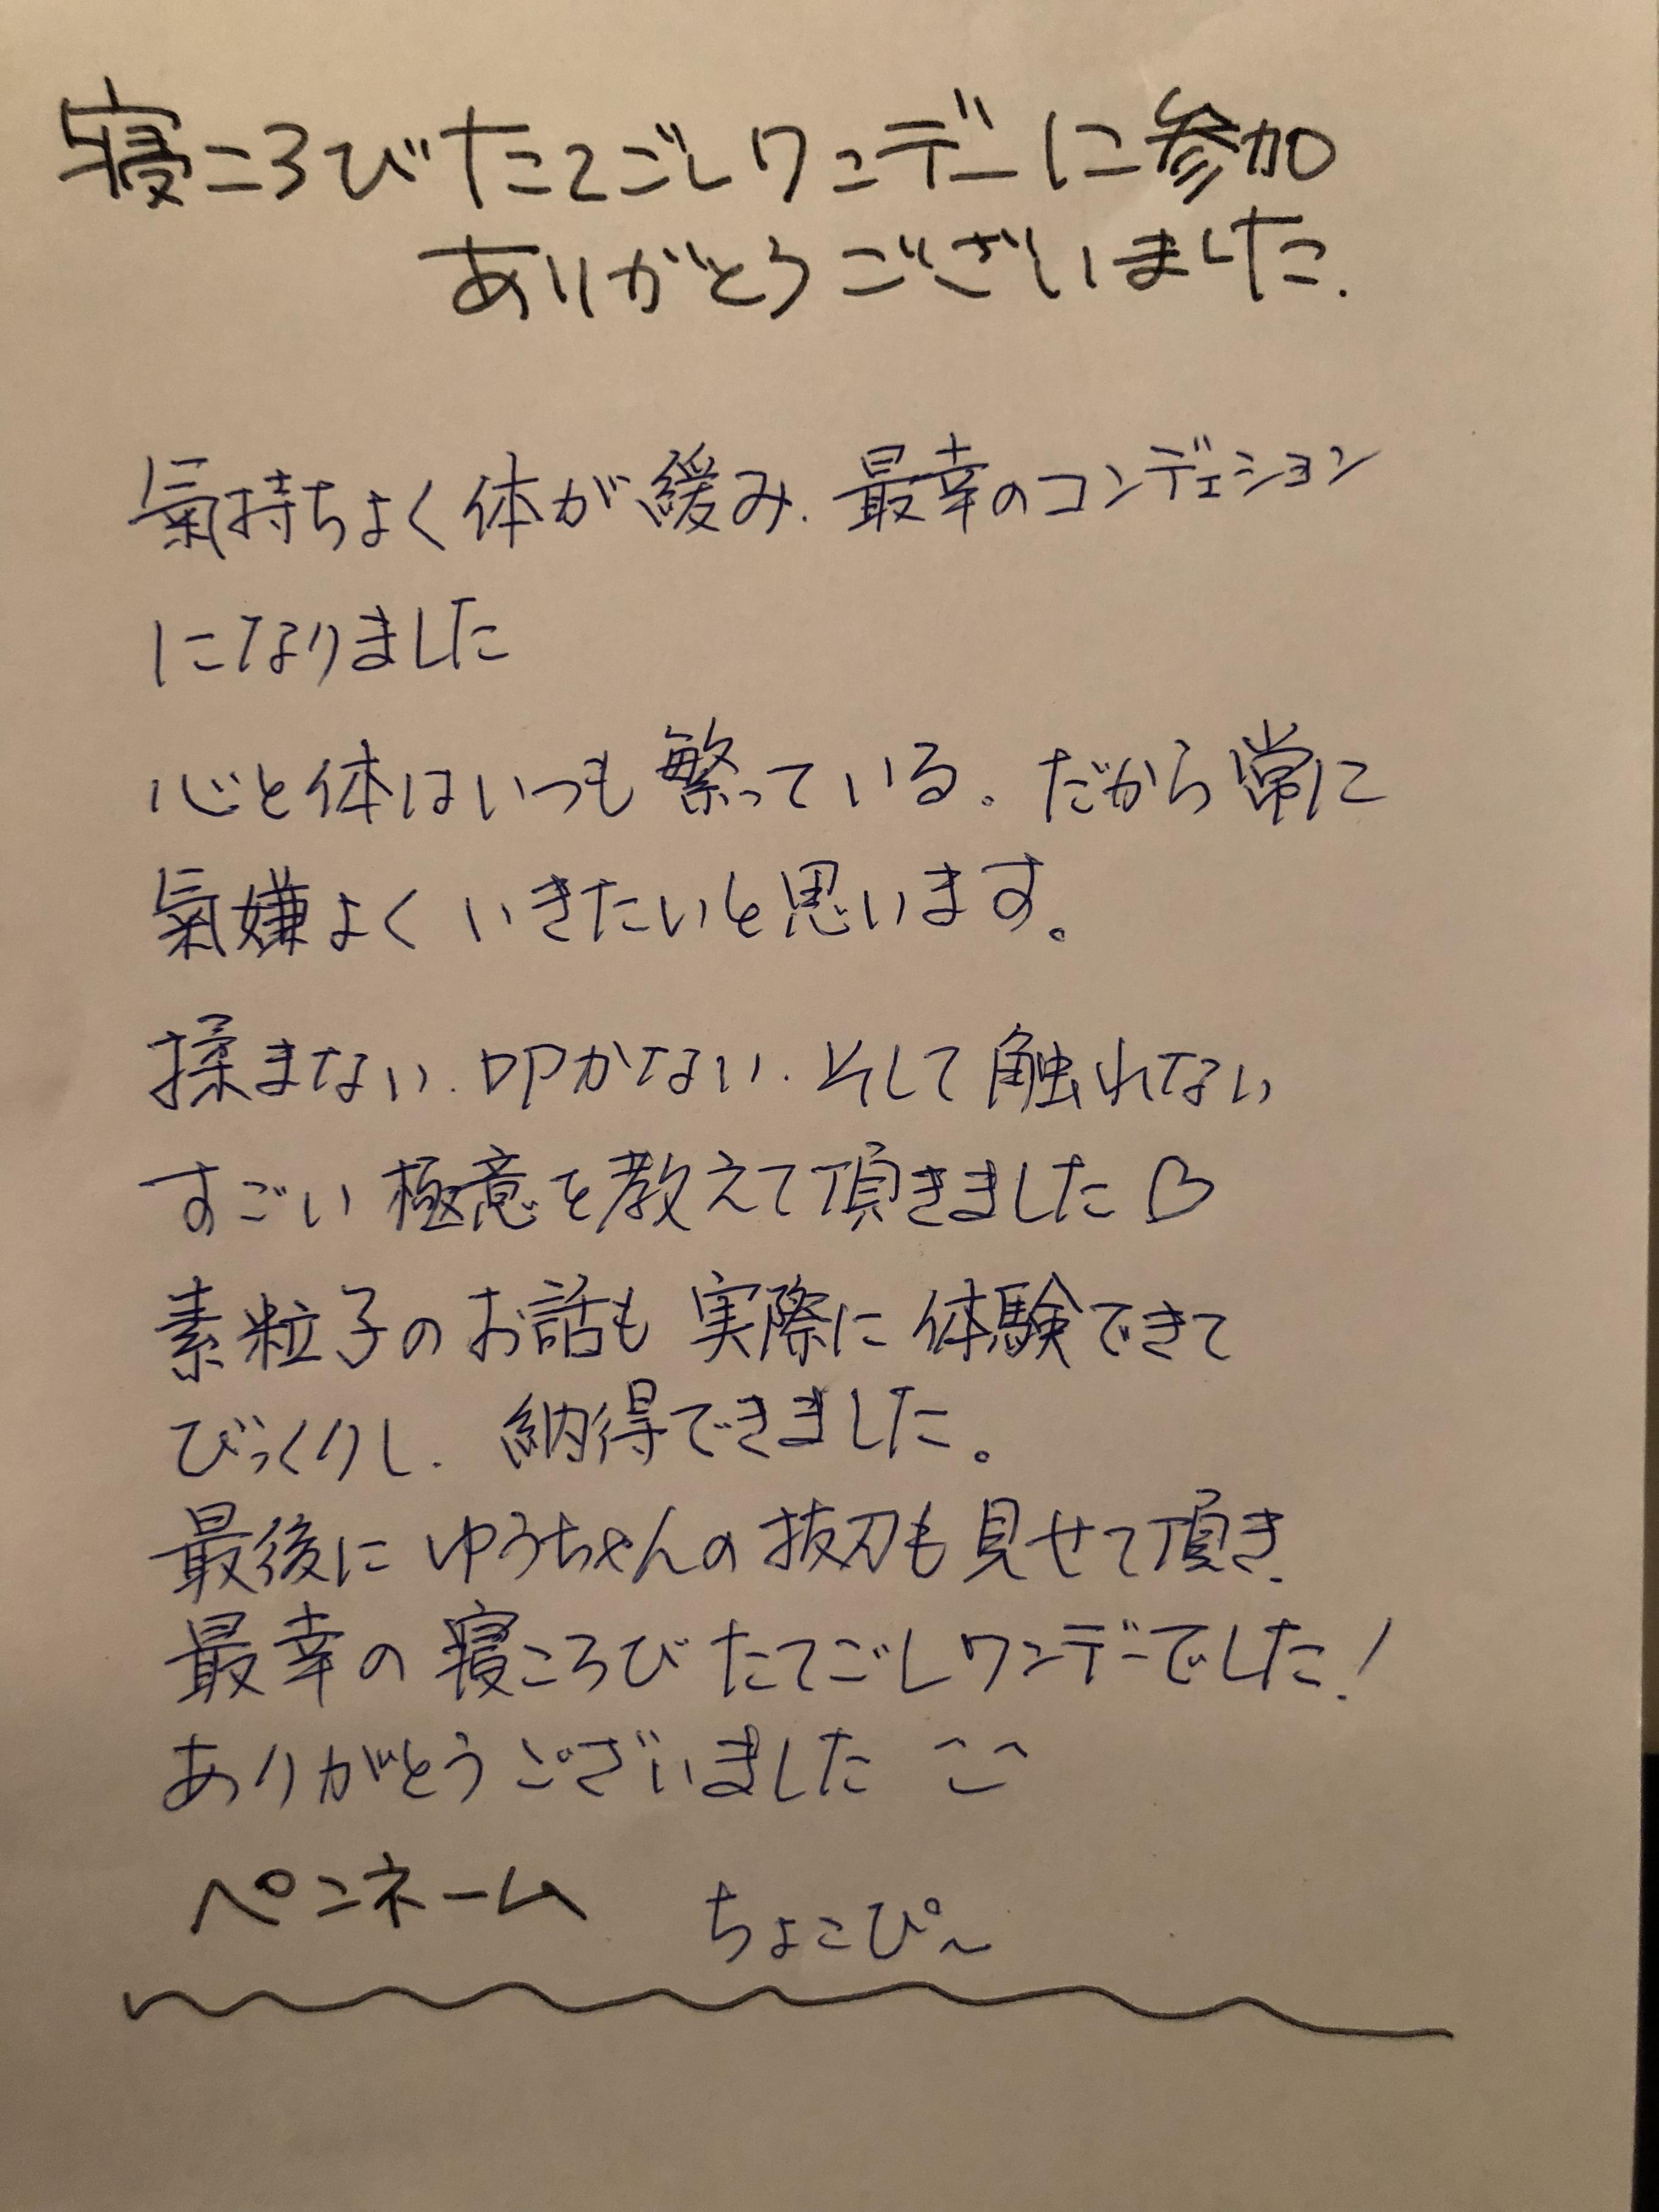 寝ころびたてごしワンデーに参加
ありがとうございました.
氣持ちよく体が緩み、最幸のコンディション
になりました
心と体はいつも繋っている。だから常に
氣嫌よくいきたいと思います。
揉まない、叩かない、そして触れない
すごい極意を教えて頂きました♡
素粒子のお話も実際に体験できて
びっくりし、納得できました。
最後にゆうちゃんの抜刀も見せて頂き、
最幸の寝ころびたてごしワンデーでした!
ありがとうございました ^^
ペンネーム ちょこぴ〜